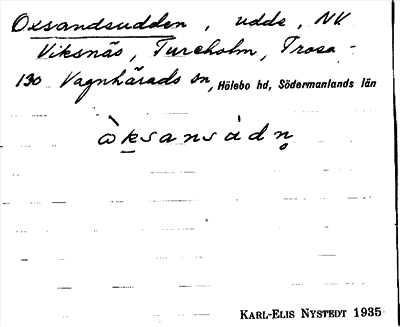 Oxsandsudden, udde, NV
Viksnäs, Tureholm, Trosa-
130 Vagnhärads sn, Hölebo hd, Södermanlands län
ò̀ksansàdn̥
KARL-ELIS NYSTEDT 1935